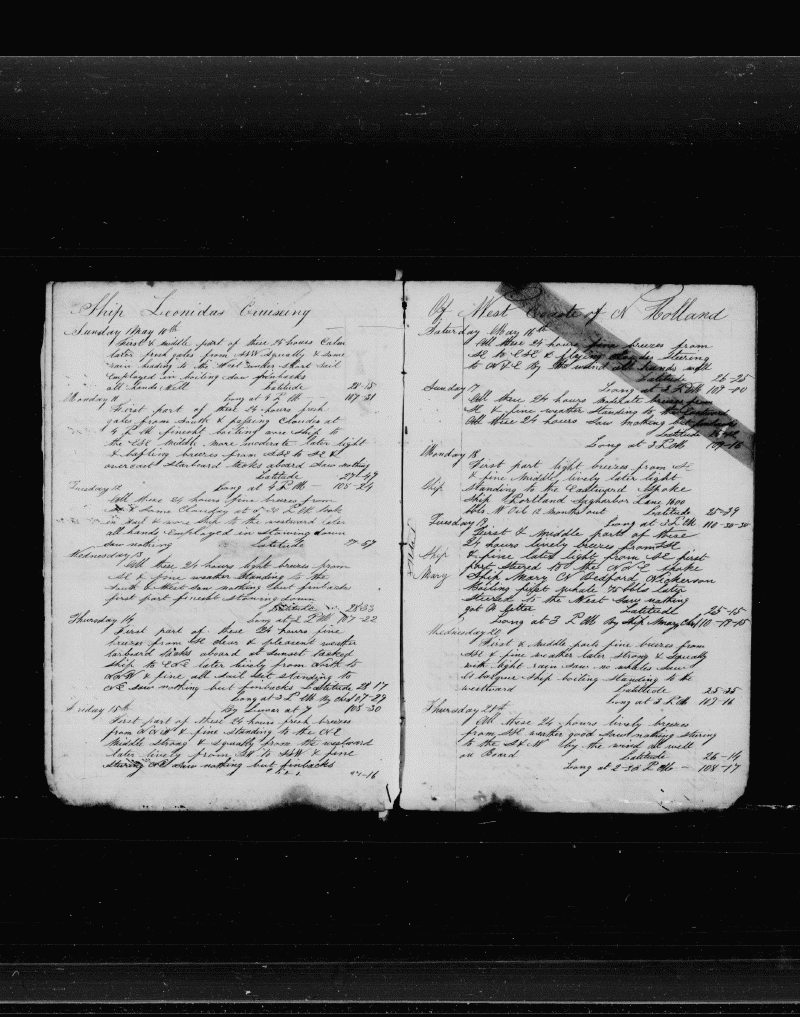 Ship Leonidas Cruiseing
Sunday May 10th
First & middle part of these 24 hours Calm
later fresh gales from SSW squally & some
rain heading to the West under short sail
Employed in boiling saw finbacks
all hands Well Latitude 28-15
Monday 11 Long at 4 P M — 107-31
First part of these 24 hours fresh
gales from South & passing Clouds at
4 P M finished boiling wore ship to
the ESE middle more moderate later light
& baffling breezes from SSE to SE &
overcast Starboard tacks aboard Saw nothing
Latitude 27-49
Tuesday 12 Long at 4 P M — 108-24
All these 24 hours fine breezes from
some Clouds at 5-30 P M took
in sail & wore ship to the westward later
all hands Employed in stowing down
saw nothing Latitude 27-57
Wednesday 13
All these 24 hours light breezes from
SE & fine weather standing to the
South & West saw nothing but finbacks
first part finished stowing down
Latitude 28-33
Thursday 14 Long at 2 P M 107-22
First part of these 24 hours fine
breezes from SE clear & pleasent weather
larboard tacks aboard at sunset tacked
ship to ENE later lively from South to
SSW & fine all sail set standing to
NE saw nothing but finbacks Latitude 28 17
Long at 3 P M By Chr 107-29
Friday 15th By Lunar at 7 108-30
First part of these 24 hours fresh breezes
from SSW & fine standing to the NE
Middle strong & squally from the westward
later lively from SW to SSW & fine
stering NE saw nothing but finbacks
27-16
Of West Coaste of N Holland
Saturday May 16th
All these 24 hours fine breezes from
SE to ESE & flying clouds Stering
to NNE By the wind all hands well
Latitude 26-25
Sunday 17 Long at 3 P M 107-00
All these 24 hours moderate breezes from
SE & fine weather standing to the Eastward
All these 24 hours saw nothing but finbacks
Latitude
Long at 3 P M 109-16
Monday 18
First part light breezes from SE
& fine Middle lively later light
Ship standing to the Eastward Spoke
Ship Portland Sagharbor Lane 1400
bbls W Oil 12 Months out Latitude 25-39
Tuesday 19 Long at 3 P M 110-30-30
First & Middle parts of these
24 hours lively breezes from SE
Ship & fine later light from SE first
part steered to the NNE spoke
Mary Ship Mary N Bedford Nickerson
boiling first whale 75 bbls Later
steered to the West saw nothing
got A letter Latitude 25-15
Long at 3 P M By Ship Marys Chr 110-17-15
Wednesday 20
First & Middle parts fine breezes from
SSE & fine weather later strong & Squally
with light rain saw no whales saw
Ship boiling standing to the
westward Latitude 25-35
Long at 3 P M 109-16
Thursday 21st
All these 24 hours lively breezes
from SSE weather good saw nothing stering
to the SW by the wind all well
on Board Latitude 26-14
Long at 2-30 P M — 108-17